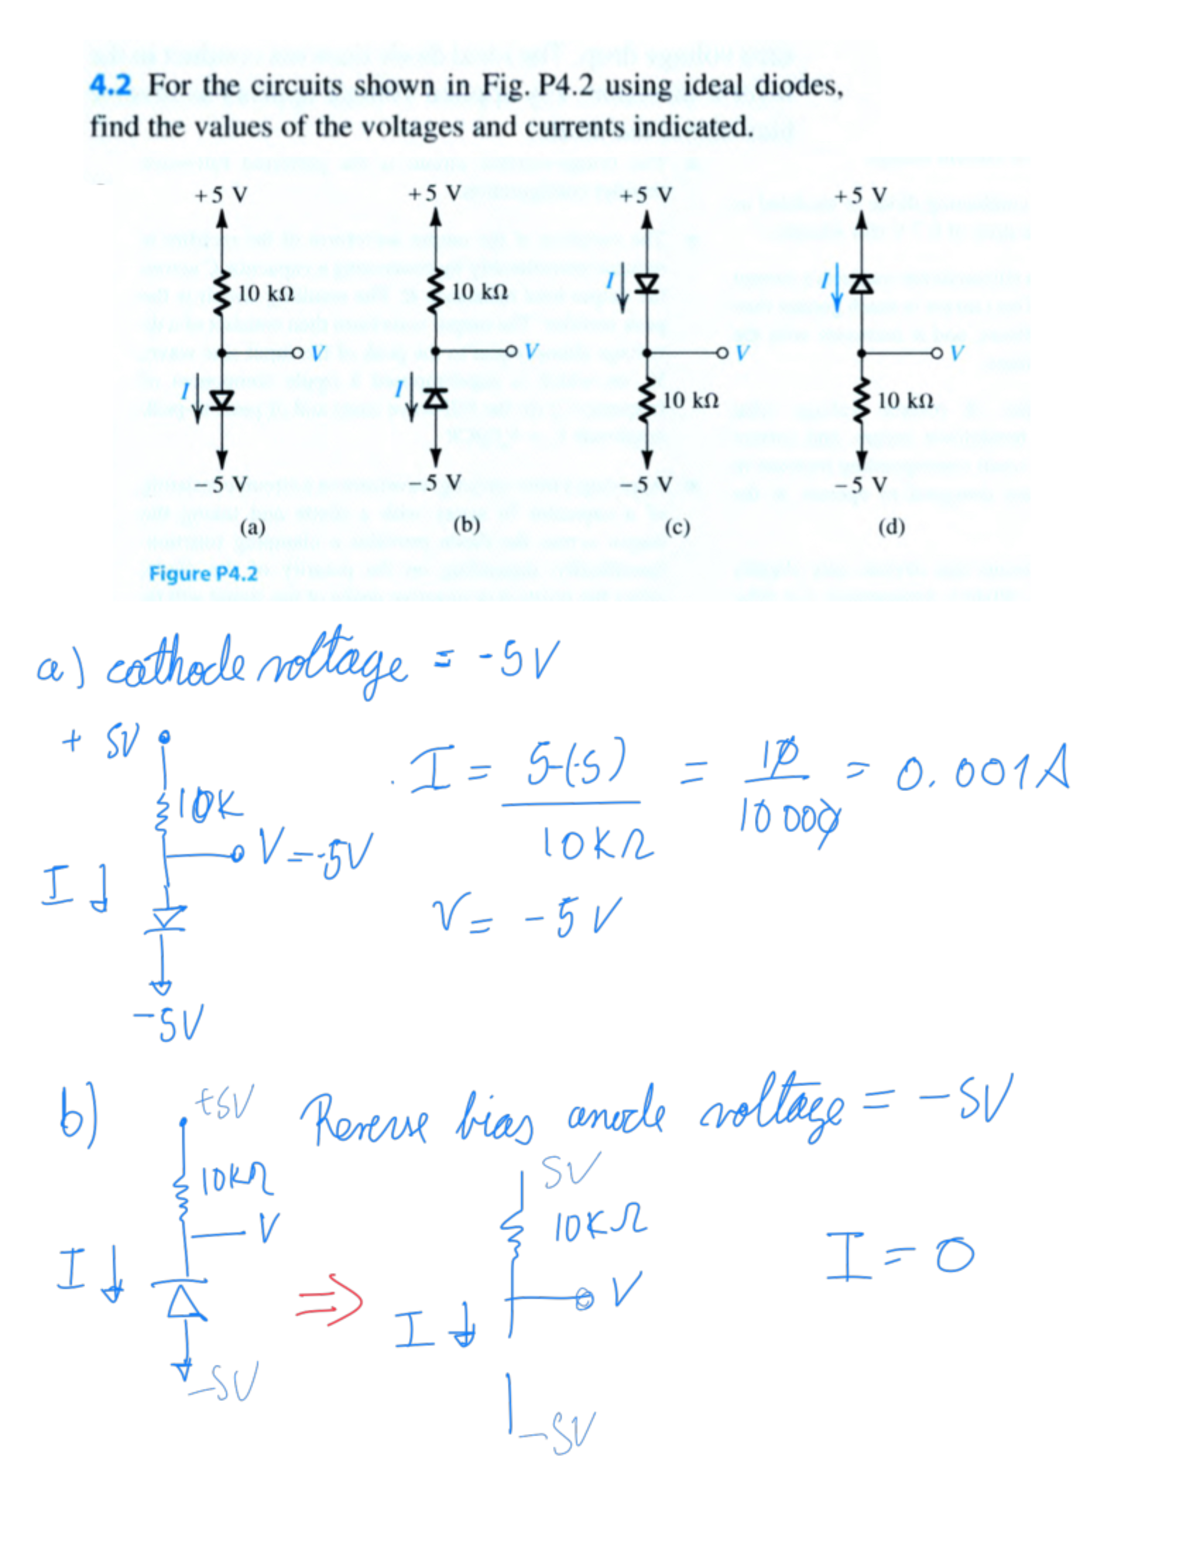 4.2 For the circuits shown in Fig. P4.2 using ideal diodes,
find the values of the voltages and currents indicated.
+5 V +5 V +5 V +5 V
I I
10 kΩ 10 kΩ
V V V V
I I
10 kΩ 10 kΩ
-5 V -5 V -5 V -5 V
(a) (b) (c) (d)
Figure P4.2
a) cathode voltage = -5V
+ 5V
I = 5-(-5) = 10 = 0.001A
10K
10KΩ 10 000
V = -5V
I
V = -5 V
-5V
b) +5V Reverse bias anode voltage = -5V
5V
10KΩ
10KΩ
V
I = 0
I ⇒ V
I
-5V
-5V